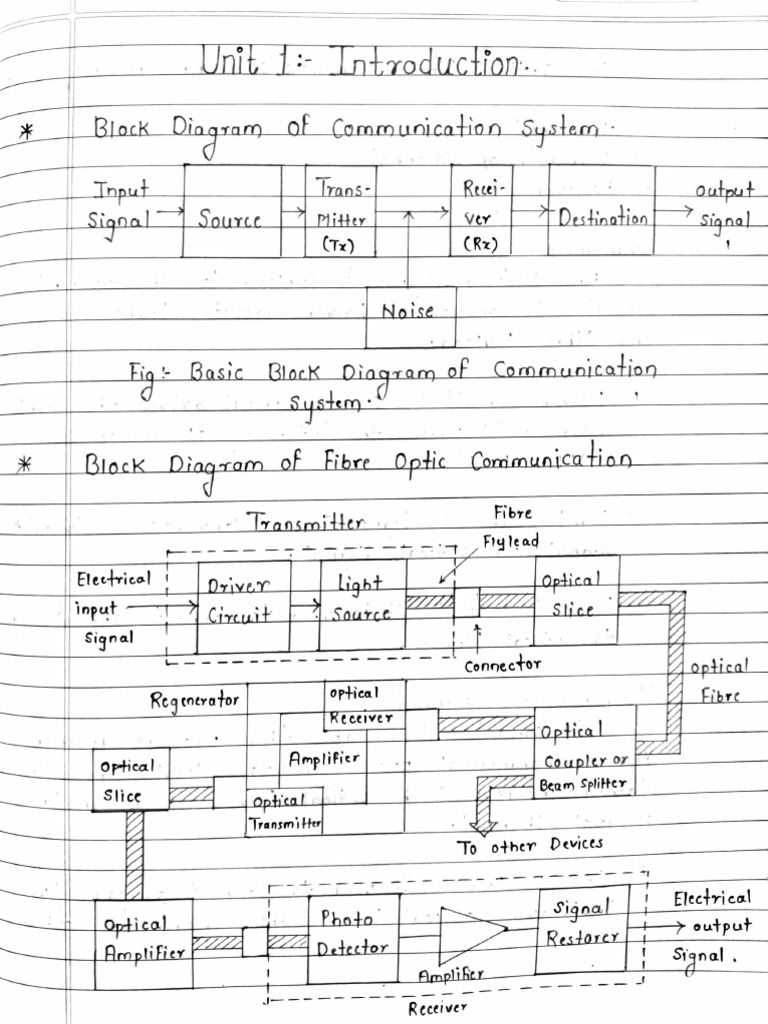 Unit 1:- Introduction.
* Block Diagram of Communication System.
Input
Signal
Source
Trans-
mitter
(Tx)
Recei-
ver
(Rx)
Destination
output
signal
Noise
Fig:- Basic Block Diagram of Communication
System.
* Block Diagram of Fibre Optic Communication
Transmitter
Fibre
Flylead
Electrical
input
signal
Driver
Circuit
Light
Source
Connector
Optical
Slice
Optical
Fibre
Regenerator
Optical
Receiver
Amplifier
Optical
Transmitter
Optical
Coupler or
Beam Splitter
To other Devices
Optical
Slice
Optical
Amplifier
Photo
Detector
Amplifier
Signal
Restorer
Electrical
output
Signal.
Receiver